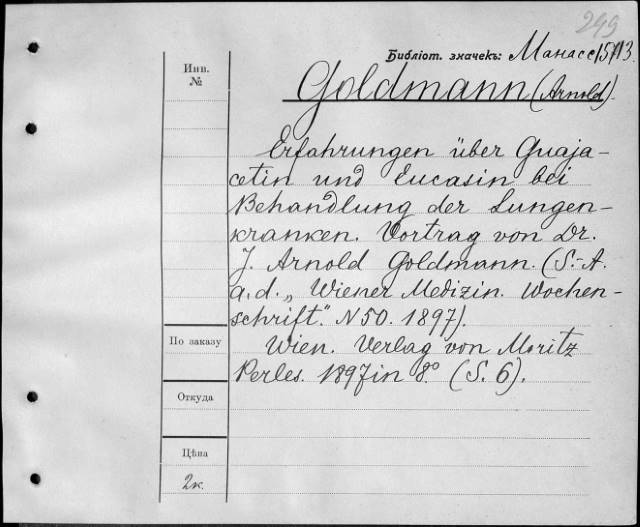 249
Библіот. значекъ: Манасс 15/113.
Инв.
№
Goldmann (Arnold).
Erfahrungen über Guaja-
cetin und Eucasin bei
Behandlung der Lungen-
kranken. Vortrag von Dr.
J. Arnold Goldmann. (S.-A.
a. d. „Wiener Medizin. Wochen-
schrift". N 50. 1897).
Wien. Verlag von Moritz
Perles. 1897 in 8°. (S. 6).
По заказу
Откуда
Цѣна
2к.